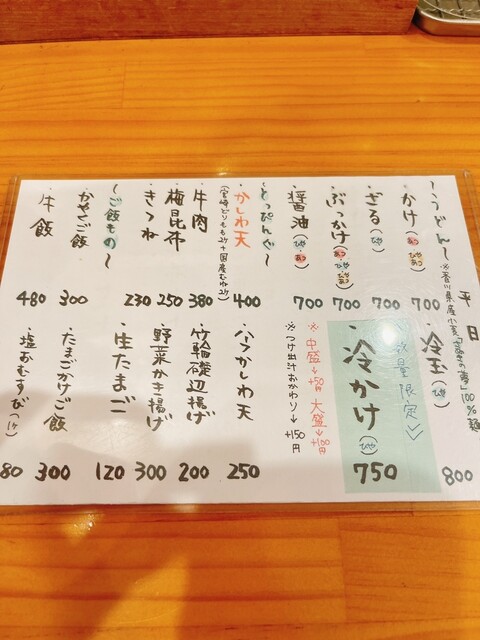 平日
〜うどん〜
※香川県産小麦「さぬきの夢」100%麺
・かけ(あつ・ひや・ひやあつ)
700
・ざる(ひや)
700
・ぶっかけ(あつ・ひや・ひやあつ)
700
・醤油(ひや・あつ)
700
・冷玉(ひや)
800
数量限定
・冷かけ(ひや)
750
※中盛→+50円 大盛→+100円
※つけ出汁おかわり→+150円
〜とっぴんぐ〜
・かしわ天
400
・牛肉
380
・梅昆布
250
・きつね
230
・ハーフかしわ天
250
・竹輪磯辺揚げ
200
・野菜かき揚げ
300
・生たまご
120
〜ご飯もの〜
・かやくご飯
300
・牛飯
480
・たまごかけご飯
300
・塩おむすび(1ケ)
80